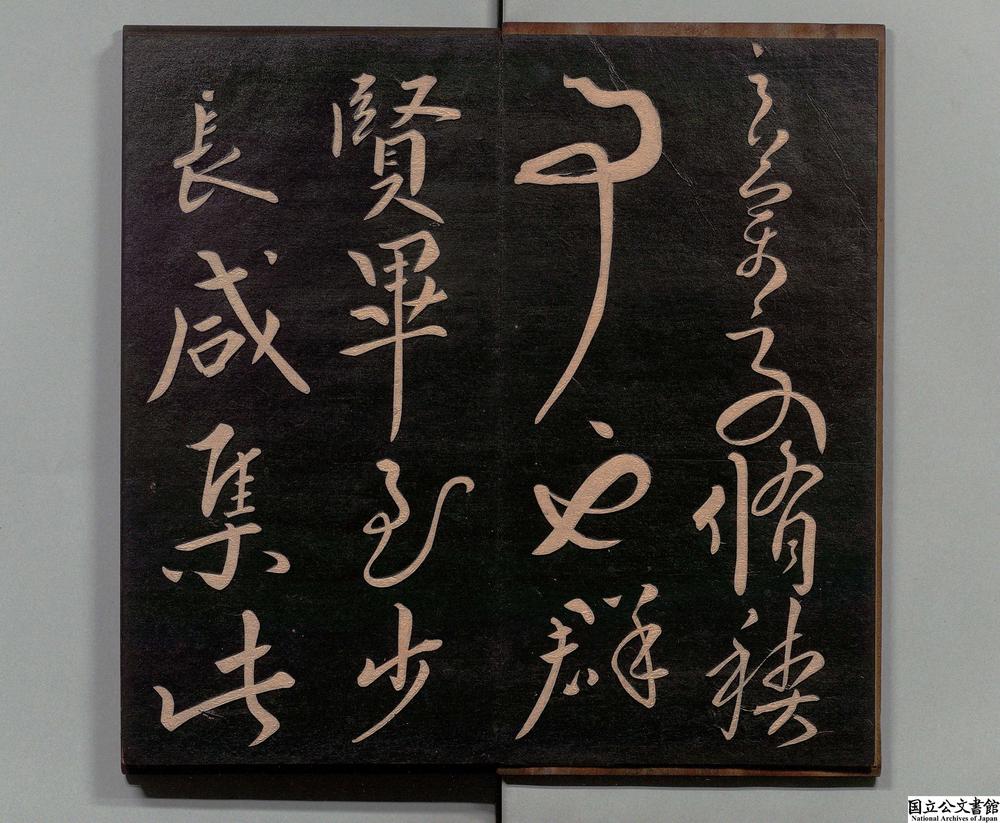 之蘭亭脩禊
事也群
賢畢至少
長咸集此
国立公文書館
National Archives of Japan